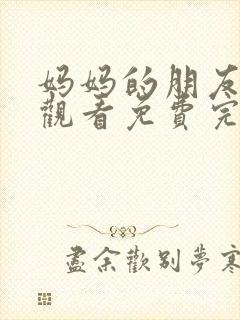 妈妈的朋友
觀看免費完
盡余歡别夢寒